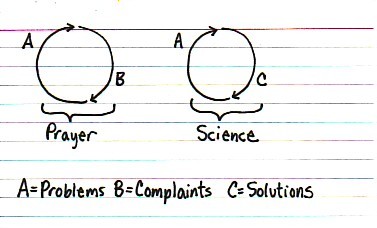 A A
B C
Prayer Science
A=Problems B=Complaints C=Solutions